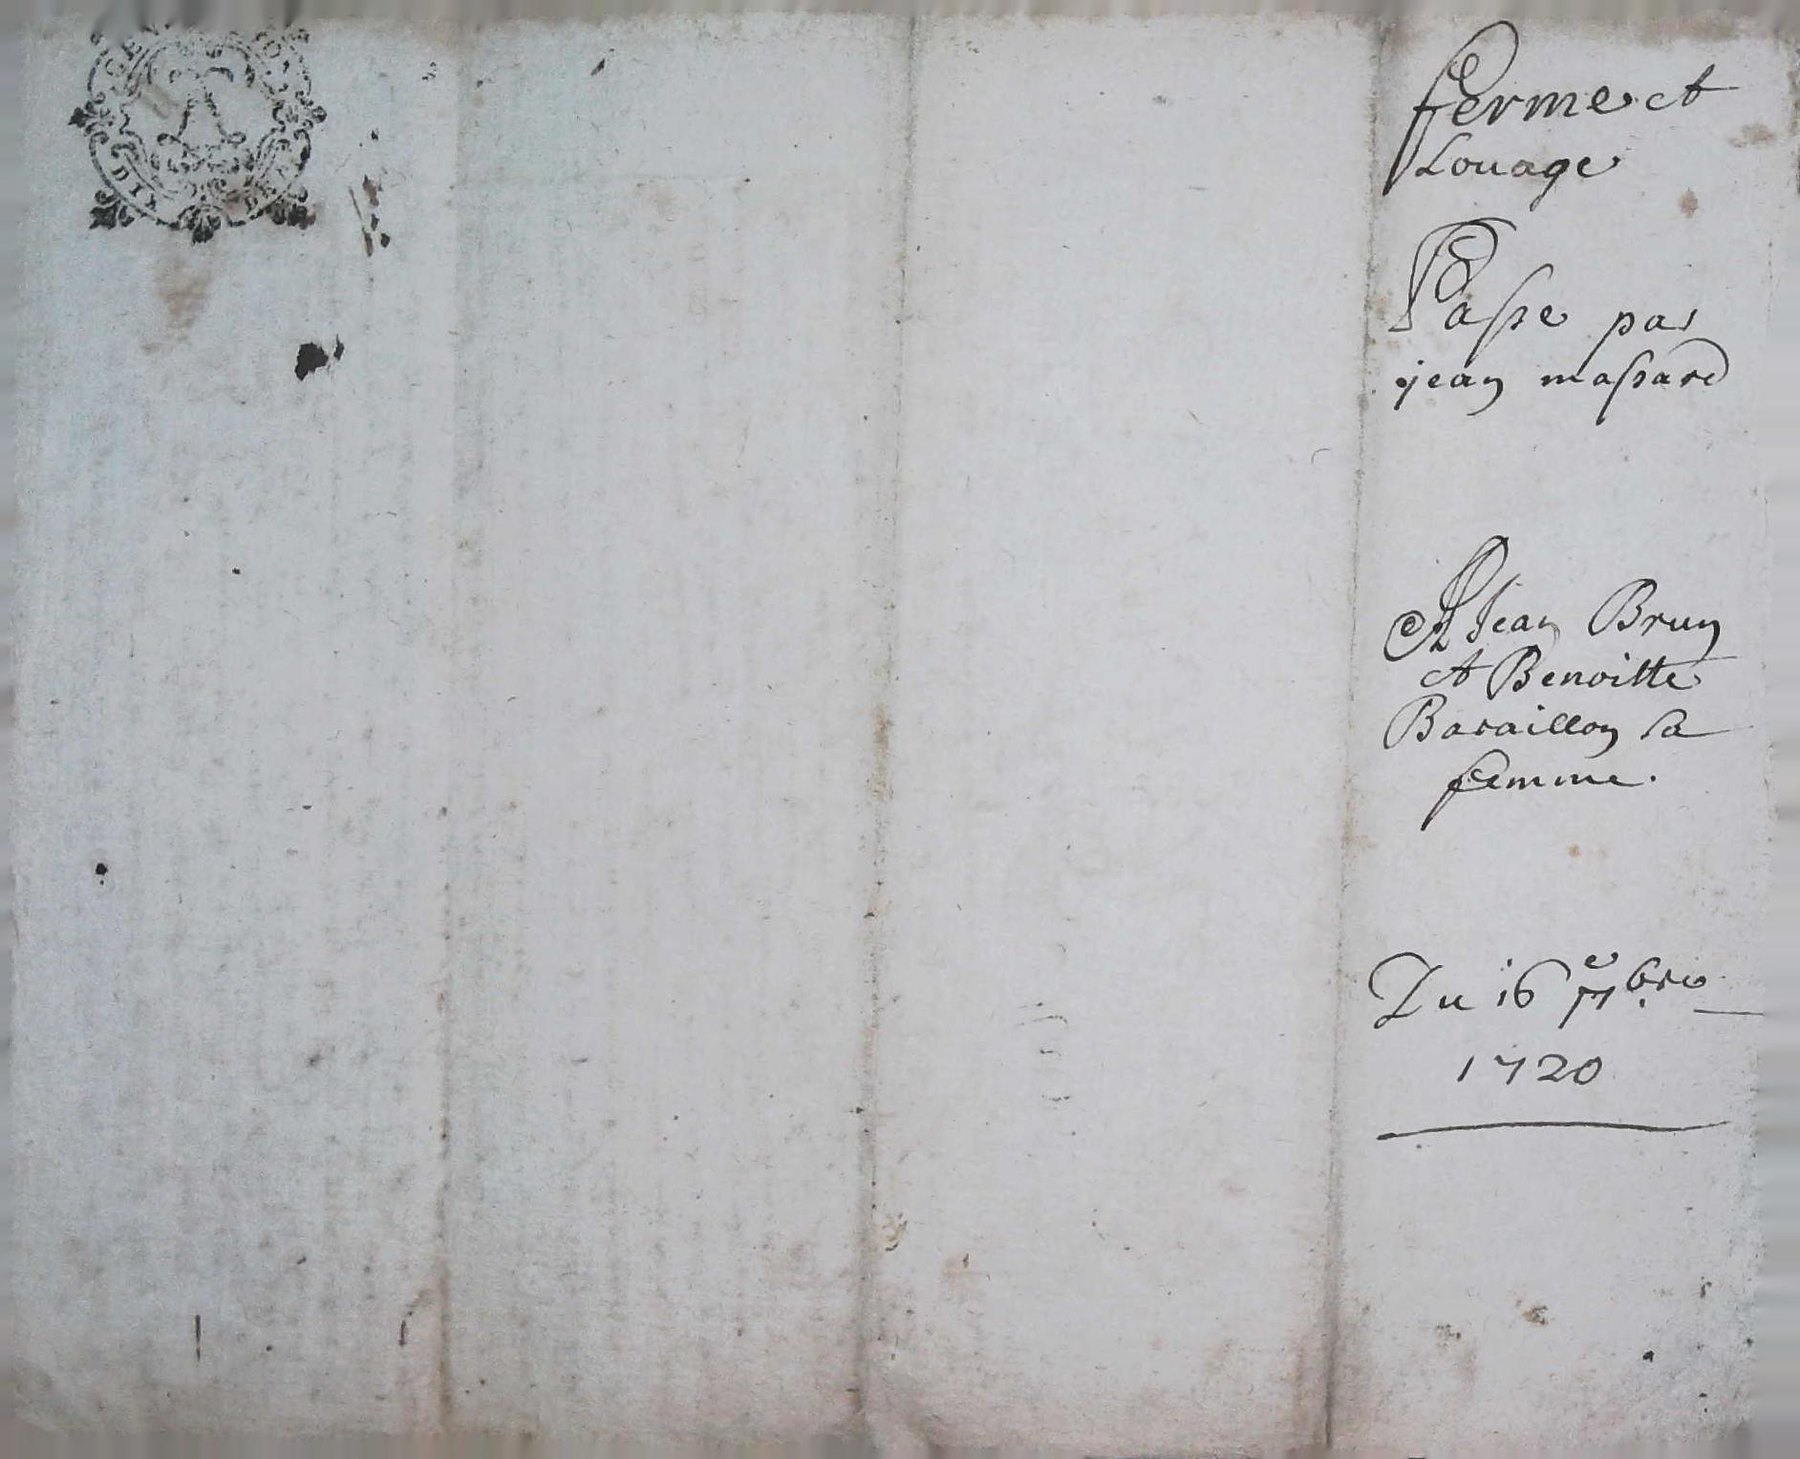 DIX DEN
ferme et
Louage
Passe par
jean massard
A Jean Brun
et Benoitte
Baraillon sa
femme.
Du 16e 7bre
1720